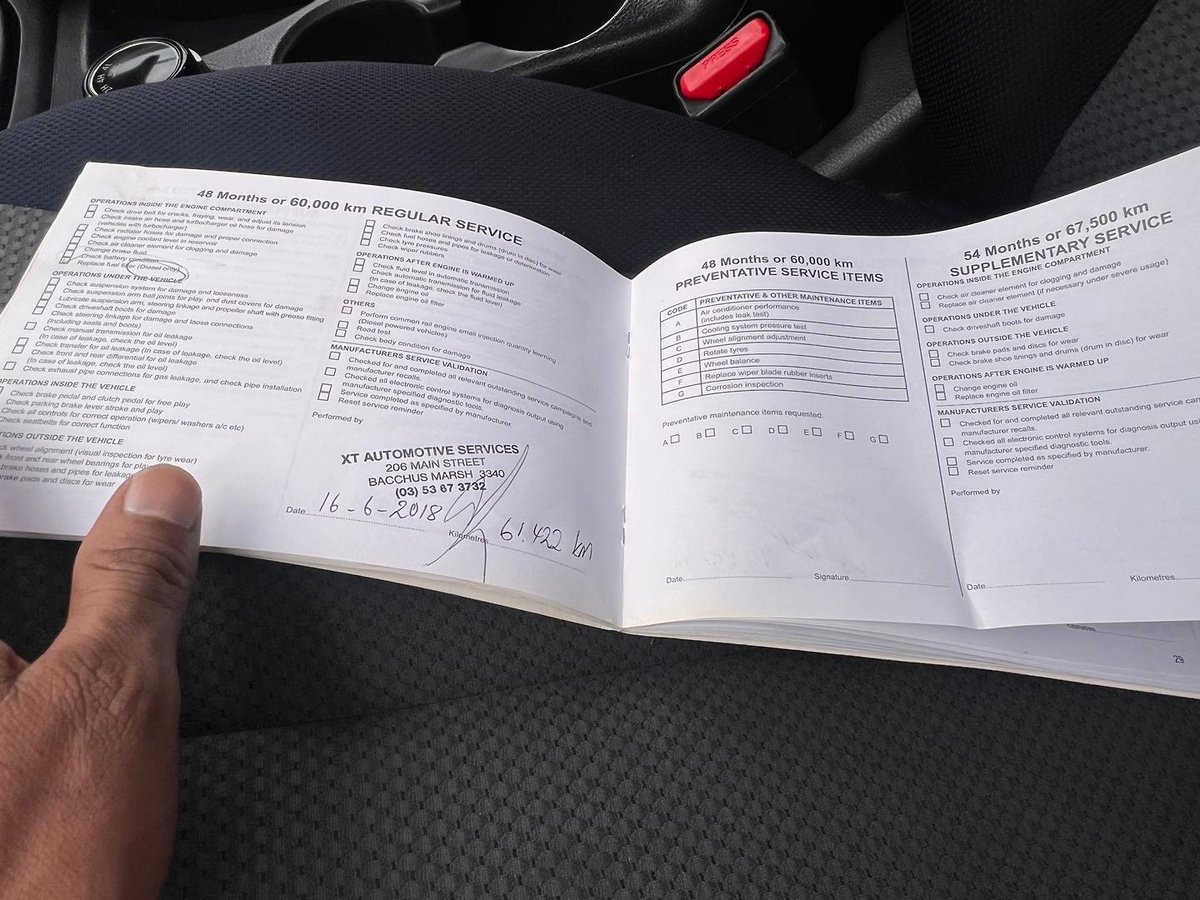 PRESS
48 Months or 60,000 km REGULAR SERVICE
OPERATIONS INSIDE THE ENGINE COMPARTMENT
Check drive belt for cracks, fraying, wear, and adjust its tension
Check intake air hose and turbocharger oil hose for damage
(vehicles with turbocharger)
Check radiator hoses for damage and proper connection
Check engine coolant level in reservoir
Check air cleaner element for clogging and damage
Change brake fluid
Check battery condition
Replace fuel filter (Diesel only)
OPERATIONS UNDER THE VEHICLE
Check suspension system for damage and looseness
Check suspension arm ball joints for play, and dust covers for damage
Lubricate suspension arm, steering linkage and propeller shaft with grease fitting
Check driveshaft boots for damage
Check steering linkage for damage and loose connections
(including seals and boots)
Check manual transmission for oil leakage
(In case of leakage, check the oil level)
Check transfer for oil leakage (In case of leakage, check the oil level)
Check front and rear differential for oil leakage
(In case of leakage, check the oil level)
Check exhaust pipe connections for gas leakage, and check pipe installation
OPERATIONS INSIDE THE VEHICLE
Check brake pedal and clutch pedal for free play
Check parking brake lever stroke and play
Check all controls for correct operation (wipers/ washers a/c etc)
Check seatbelts for correct function
TIONS OUTSIDE THE VEHICLE
ck wheel alignment (visual inspection for tyre wear)
front and rear wheel bearings for play
brake hoses and pipes for leakage
brake pads and discs for wear
Check brake shoe linings and drums (drum in disc) for wear
Check fuel hoses and pipes for leakage or deterioration
Check tyre pressures
Check wiper rubbers
OPERATIONS AFTER ENGINE IS WARMED UP
Check fluid level in automatic transmission
Check automatic transmission for fluid leakage
(In case of leakage, check the fluid level)
Change engine oil
Replace engine oil filter
OTHERS
Perform common rail engine small injection quantity learning
(Diesel powered vehicles)
Road test
Check body condition for damage
MANUFACTURERS SERVICE VALIDATION
Checked for and completed all relevant outstanding service campaigns and
manufacturer recalls.
Checked all electronic control systems for diagnosis output using
manufacturer specified diagnostic tools.
Service completed as specified by manufacturer.
Reset service reminder
Performed by
XT AUTOMOTIVE SERVICES
206 MAIN STREET
BACCHUS MARSH 3340
(03) 53 67 3732
Date 16-6-2018 Kilometres 61,422 km
48 Months or 60,000 km
PREVENTATIVE SERVICE ITEMS
CODE PREVENTATIVE & OTHER MAINTENANCE ITEMS
A Air conditioner performance
(includes leak test)
B Cooling system pressure test
C Wheel alignment adjustment
D Rotate tyres
E Wheel balance
F Replace wiper blade rubber inserts
G Corrosion inspection
Preventative maintenance items requested:
A B C D E F G
Date Signature
54 Months or 67,500 km
SUPPLEMENTARY SERVICE
OPERATIONS INSIDE THE ENGINE COMPARTMENT
Check air cleaner element for clogging and damage
Replace air cleaner element (if necessary under severe usage)
OPERATIONS UNDER THE VEHICLE
Check driveshaft boots for damage
OPERATIONS OUTSIDE THE VEHICLE
Check brake pads and discs for wear
Check brake shoe linings and drums (drum in disc) for wear
OPERATIONS AFTER ENGINE IS WARMED UP
Change engine oil
Replace engine oil filter
MANUFACTURERS SERVICE VALIDATION
Checked for and completed all relevant outstanding service cam
manufacturer recalls.
Checked all electronic control systems for diagnosis output us
manufacturer specified diagnostic tools.
Service completed as specified by manufacturer.
Reset service reminder
Performed by
Date Kilometres
29